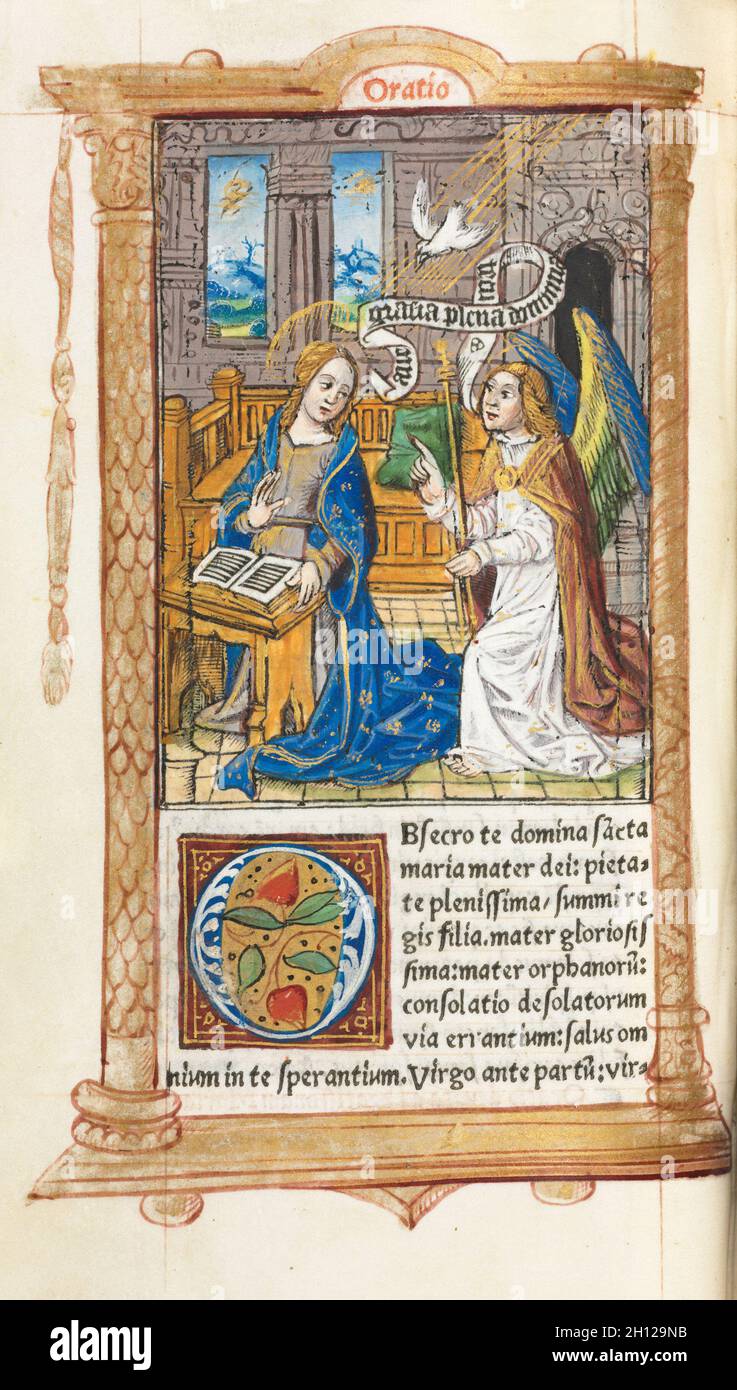 Oratio
aue
gracia plena dominus
tecu
Bsecro te domina sācta
maria mater dei: pieta-
te plenissima, summi re
gis filia. mater gloriosis
sima: mater orphanorū:
consolatio desolatorum
via errantium: salus om
nium in te sperantium. Virgo ante partū: vir-
alamy
Image ID: 2H129NB
www.alamy.com